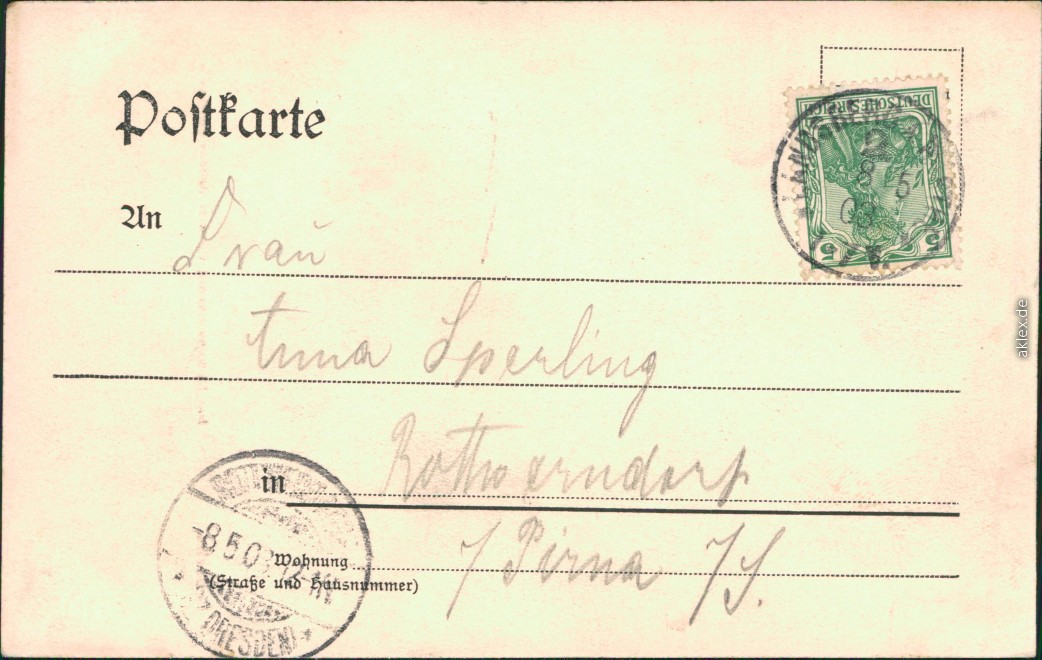 Postkarte
DEUTSCHES REICH
8 5
5 5
An Frau
Anna Sperling
in Rottwerndorf
-8.5.0
Wohnung
(Straße und Hausnummer)
/ Pirna / S.
(DRESDEN)
aklex.de